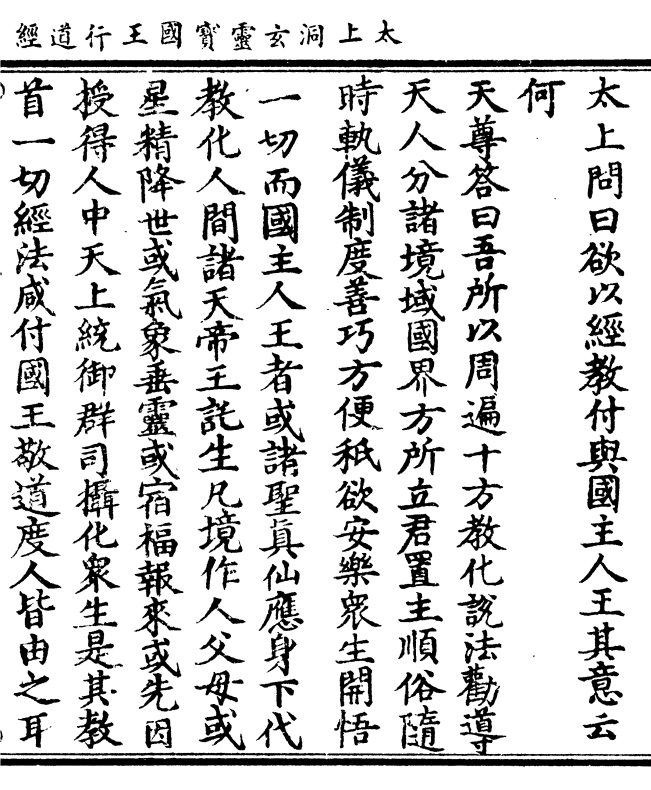 太上洞玄靈寳國王行道經
太上問曰欲以經教付與國主人王其意云
何
天尊答曰吾所以周遍十方教化說法勸導
天人分諸境域國界方所立君置主順俗隨
時軌儀制度善巧方便秖欲安樂衆生開悟
一切而國主人王者或諸聖真仙應身下代
教化人間諸天帝王託生凡境作人父母或
星精降世或氣象垂靈或宿福報來或先因
授得人中天上統御群司攝化衆生是其教
首一切經法咸付國王敬道度人皆由之耳